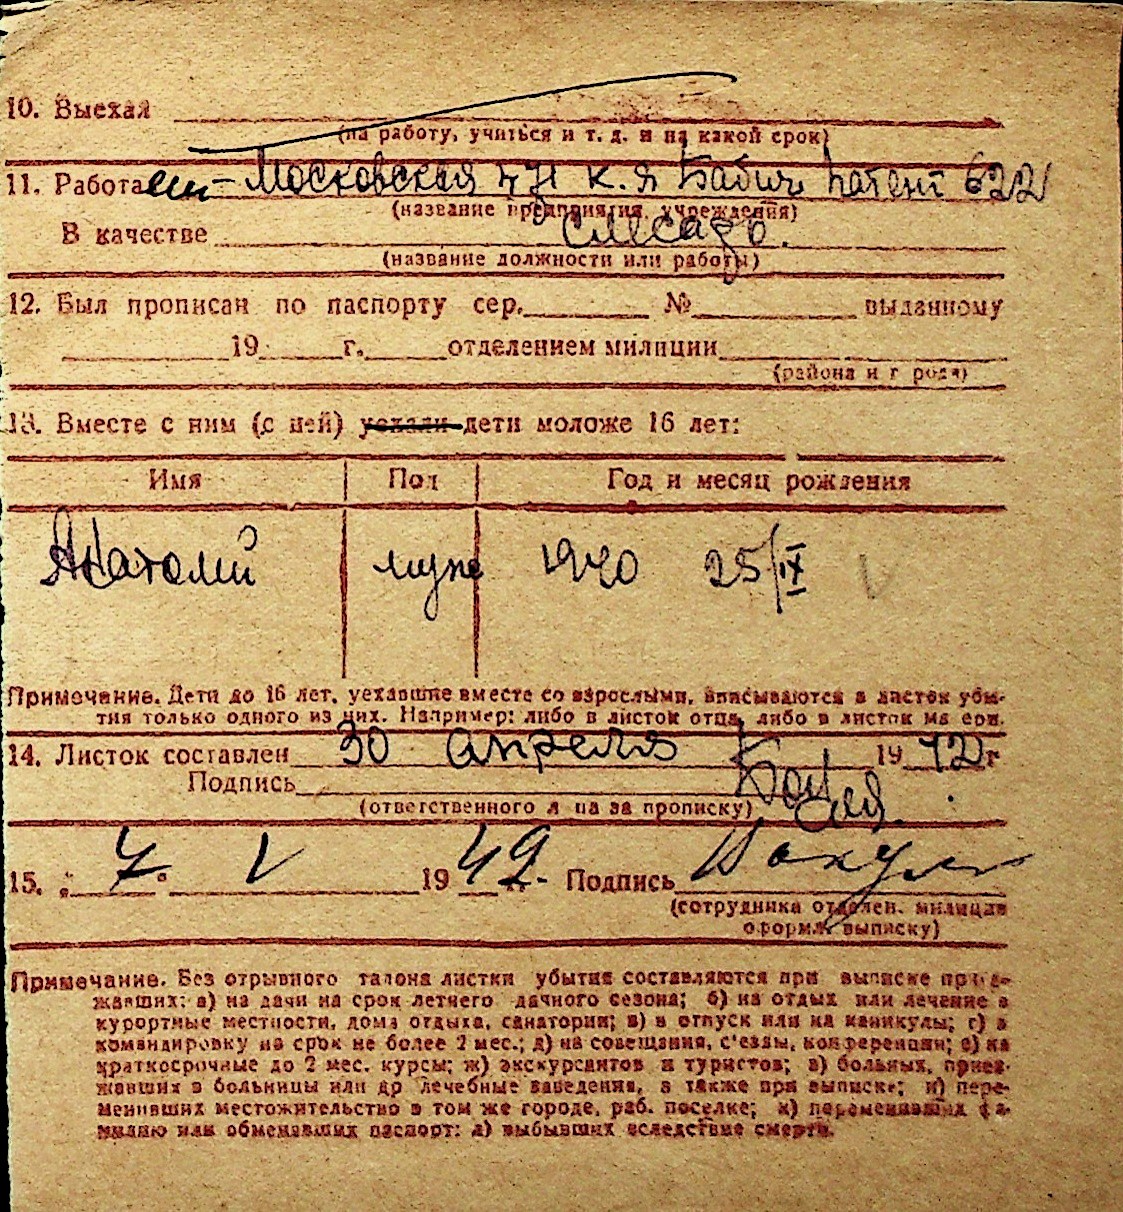 10. Выехал
(на работу, учиться и т. д. и на какой срок)
11. Работает - Московская 47 к. я Бабич патент 622
(название предприятия, учреждения)
В качестве слесарь.
(название должности или работы)
12. Был прописан по паспорту сер. № выданному
19 г. отделением милиции
(района и города)
13. Вместе с ним (с ней) уехали дети моложе 16 лет:
Имя Пол Год и месяц рождения
Анатолий муж 1940 25/IX
Примечание. Дети до 16 лет, уехавшие вместе со взрослыми, вписываются в листок убы-
тия только одного из них. Например: либо в листок отца, либо в листок матери.
14. Листок составлен 30 апреля 1942 г
Подпись
(ответственного лица за прописку)
15. „ 7 " V 1942. Подпись
(сотрудника отделен. милиции
оформл. выписку)
Примечание. Без отрывного талона листки убытия составляются при выписке приез-
жавших: а) на дачи на срок летнего дачного сезона; б) на отдых или лечение в
курортные местности, дома отдыха, санатории; в) в отпуск или на каникулы; г) в
командировку на срок не более 2 мес.; д) на совещания, с'езды, конференции; е) на
краткосрочные до 2 мес. курсы; ж) экскурсантов и туристов; з) больных, приез-
жавших в больницы или др лечебные заведения, а также при выписке; и) пере-
менивших местожительство в том же городе, раб. поселке; к) переменивших фа-
милию или обменявших паспорт; л) выбывших вследствие смерти.